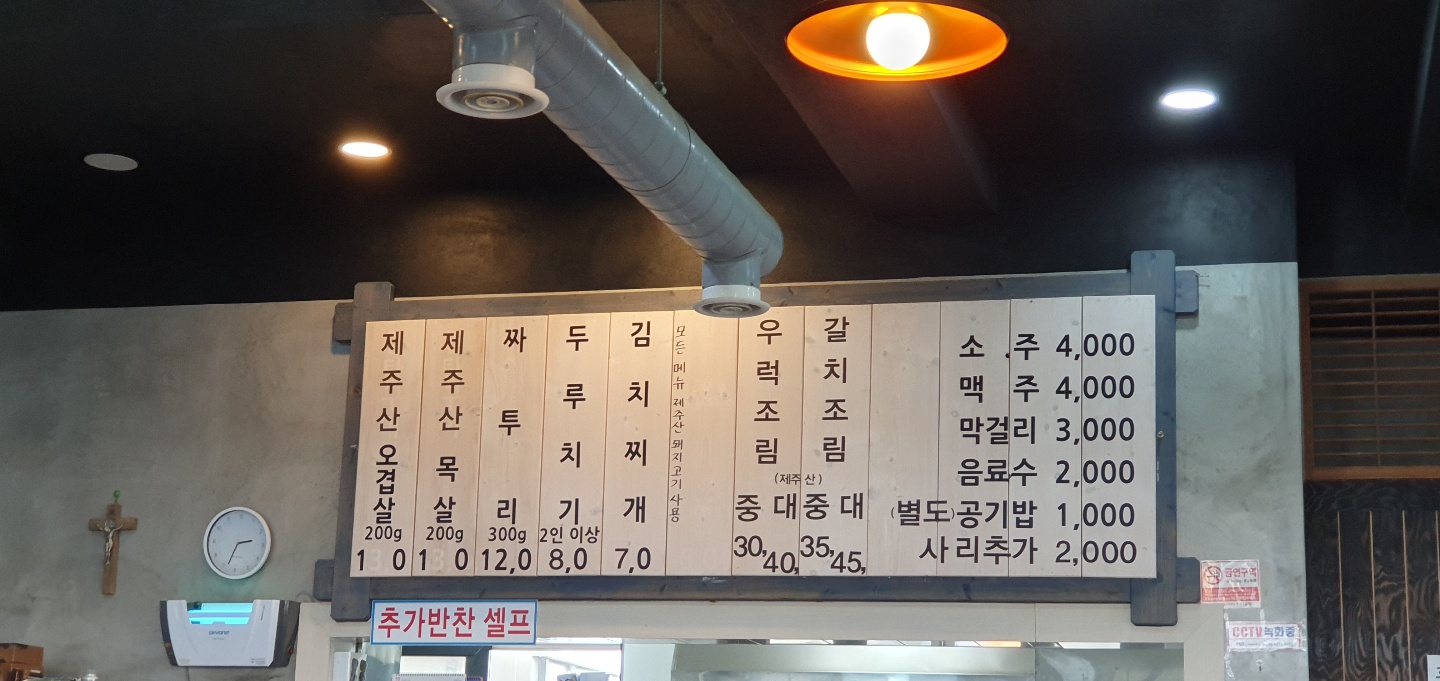 제주산오겹살
200g
제주산목살
200g
짜투리
300g
12,0
두루치기
2인 이상
8,0
김치찌개
7,0
모든 메뉴 제주산 돼지고기 사용
우럭조림
갈치조림
(제주산)
중 대
30, 40,
중 대
35, 45,
소 주 4,000
맥 주 4,000
막걸리 3,000
음료수 2,000
(별도)공기밥 1,000
사리추가 2,000
추가반찬 셀프
금연구역
CCTV녹화중